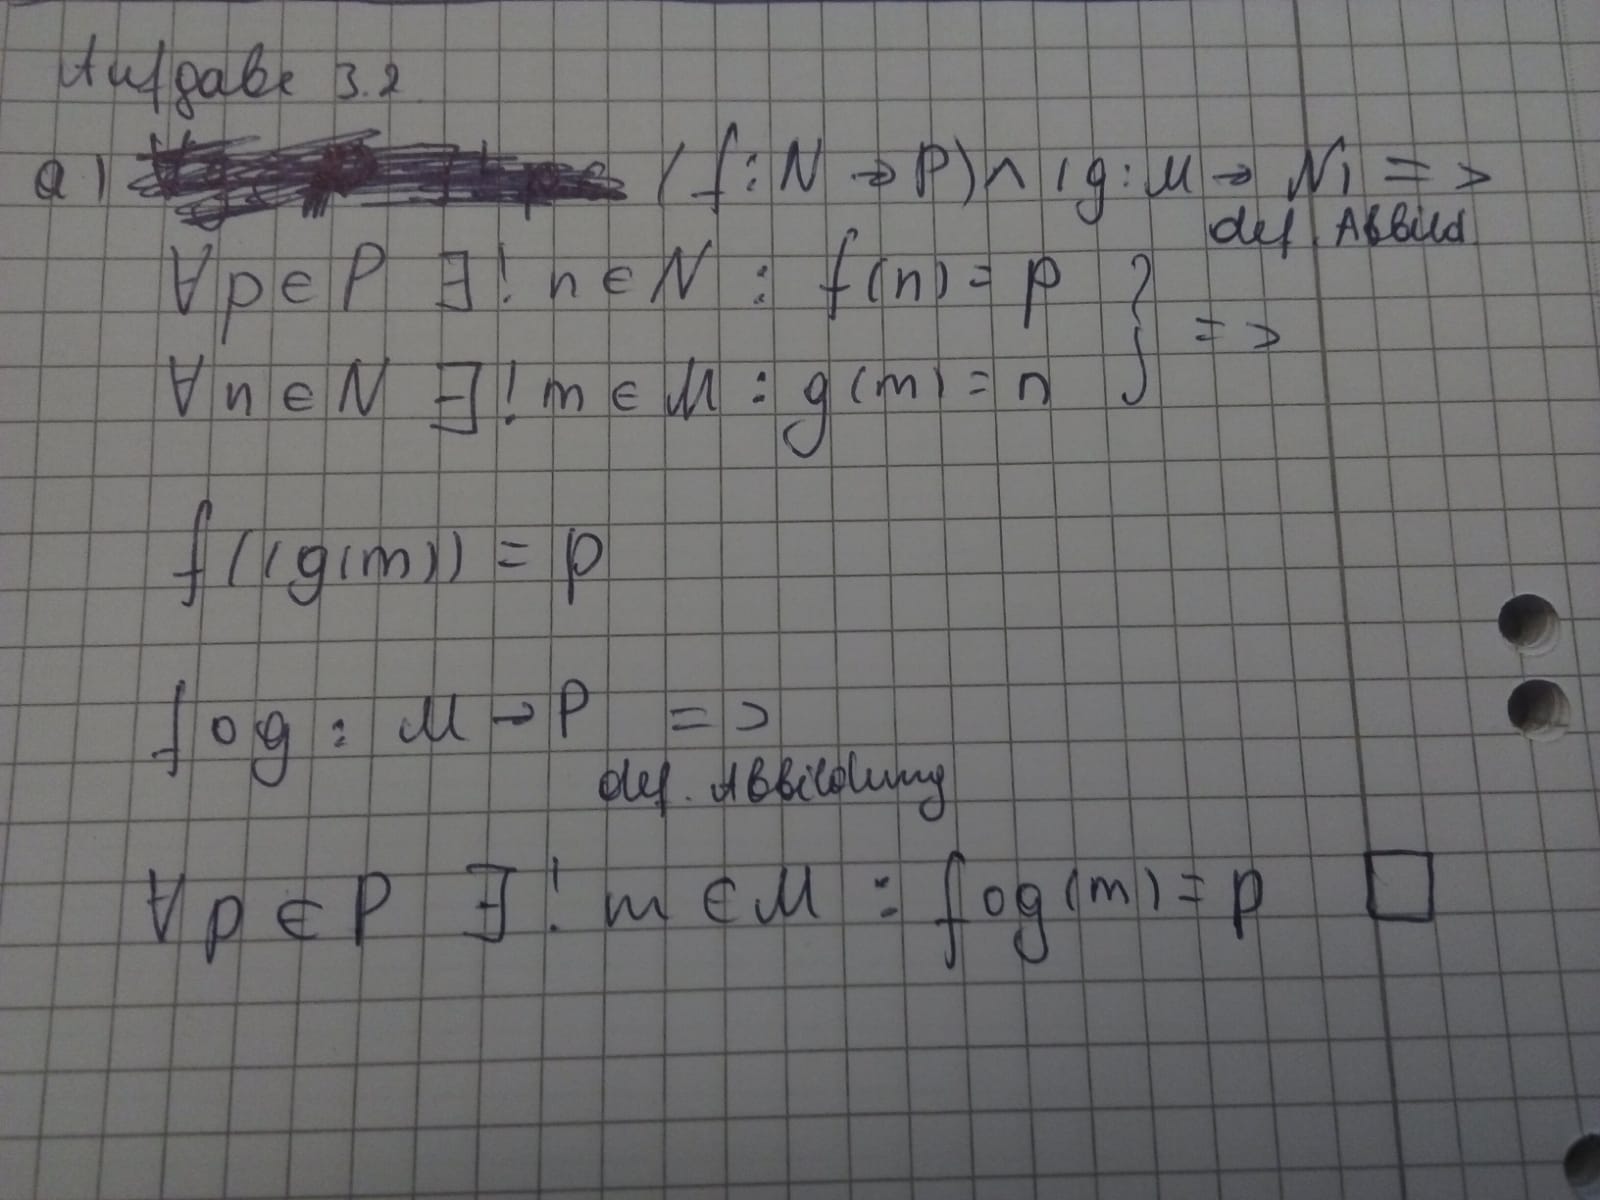 Aufgabe 3.2
a) (f: N → P) ∧ (g: M → N) =>
def. Abbild
∀p∈P ∃! n∈N : f(n) = p } =>
∀n∈N ∃! m∈M : g(m) = n
f((g(m)) = p
f∘g : M → P =>
def. Abbildung
∀p∈P ∃! m∈M : f∘g(m) = p □